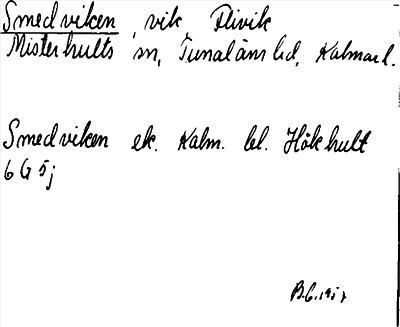 Smedviken, vik, Flivik
Misterhults sn, Tunaläns hd, Kalmar l.
Smedviken ek. Kalm. bl. Hökhult
6 G 5 j